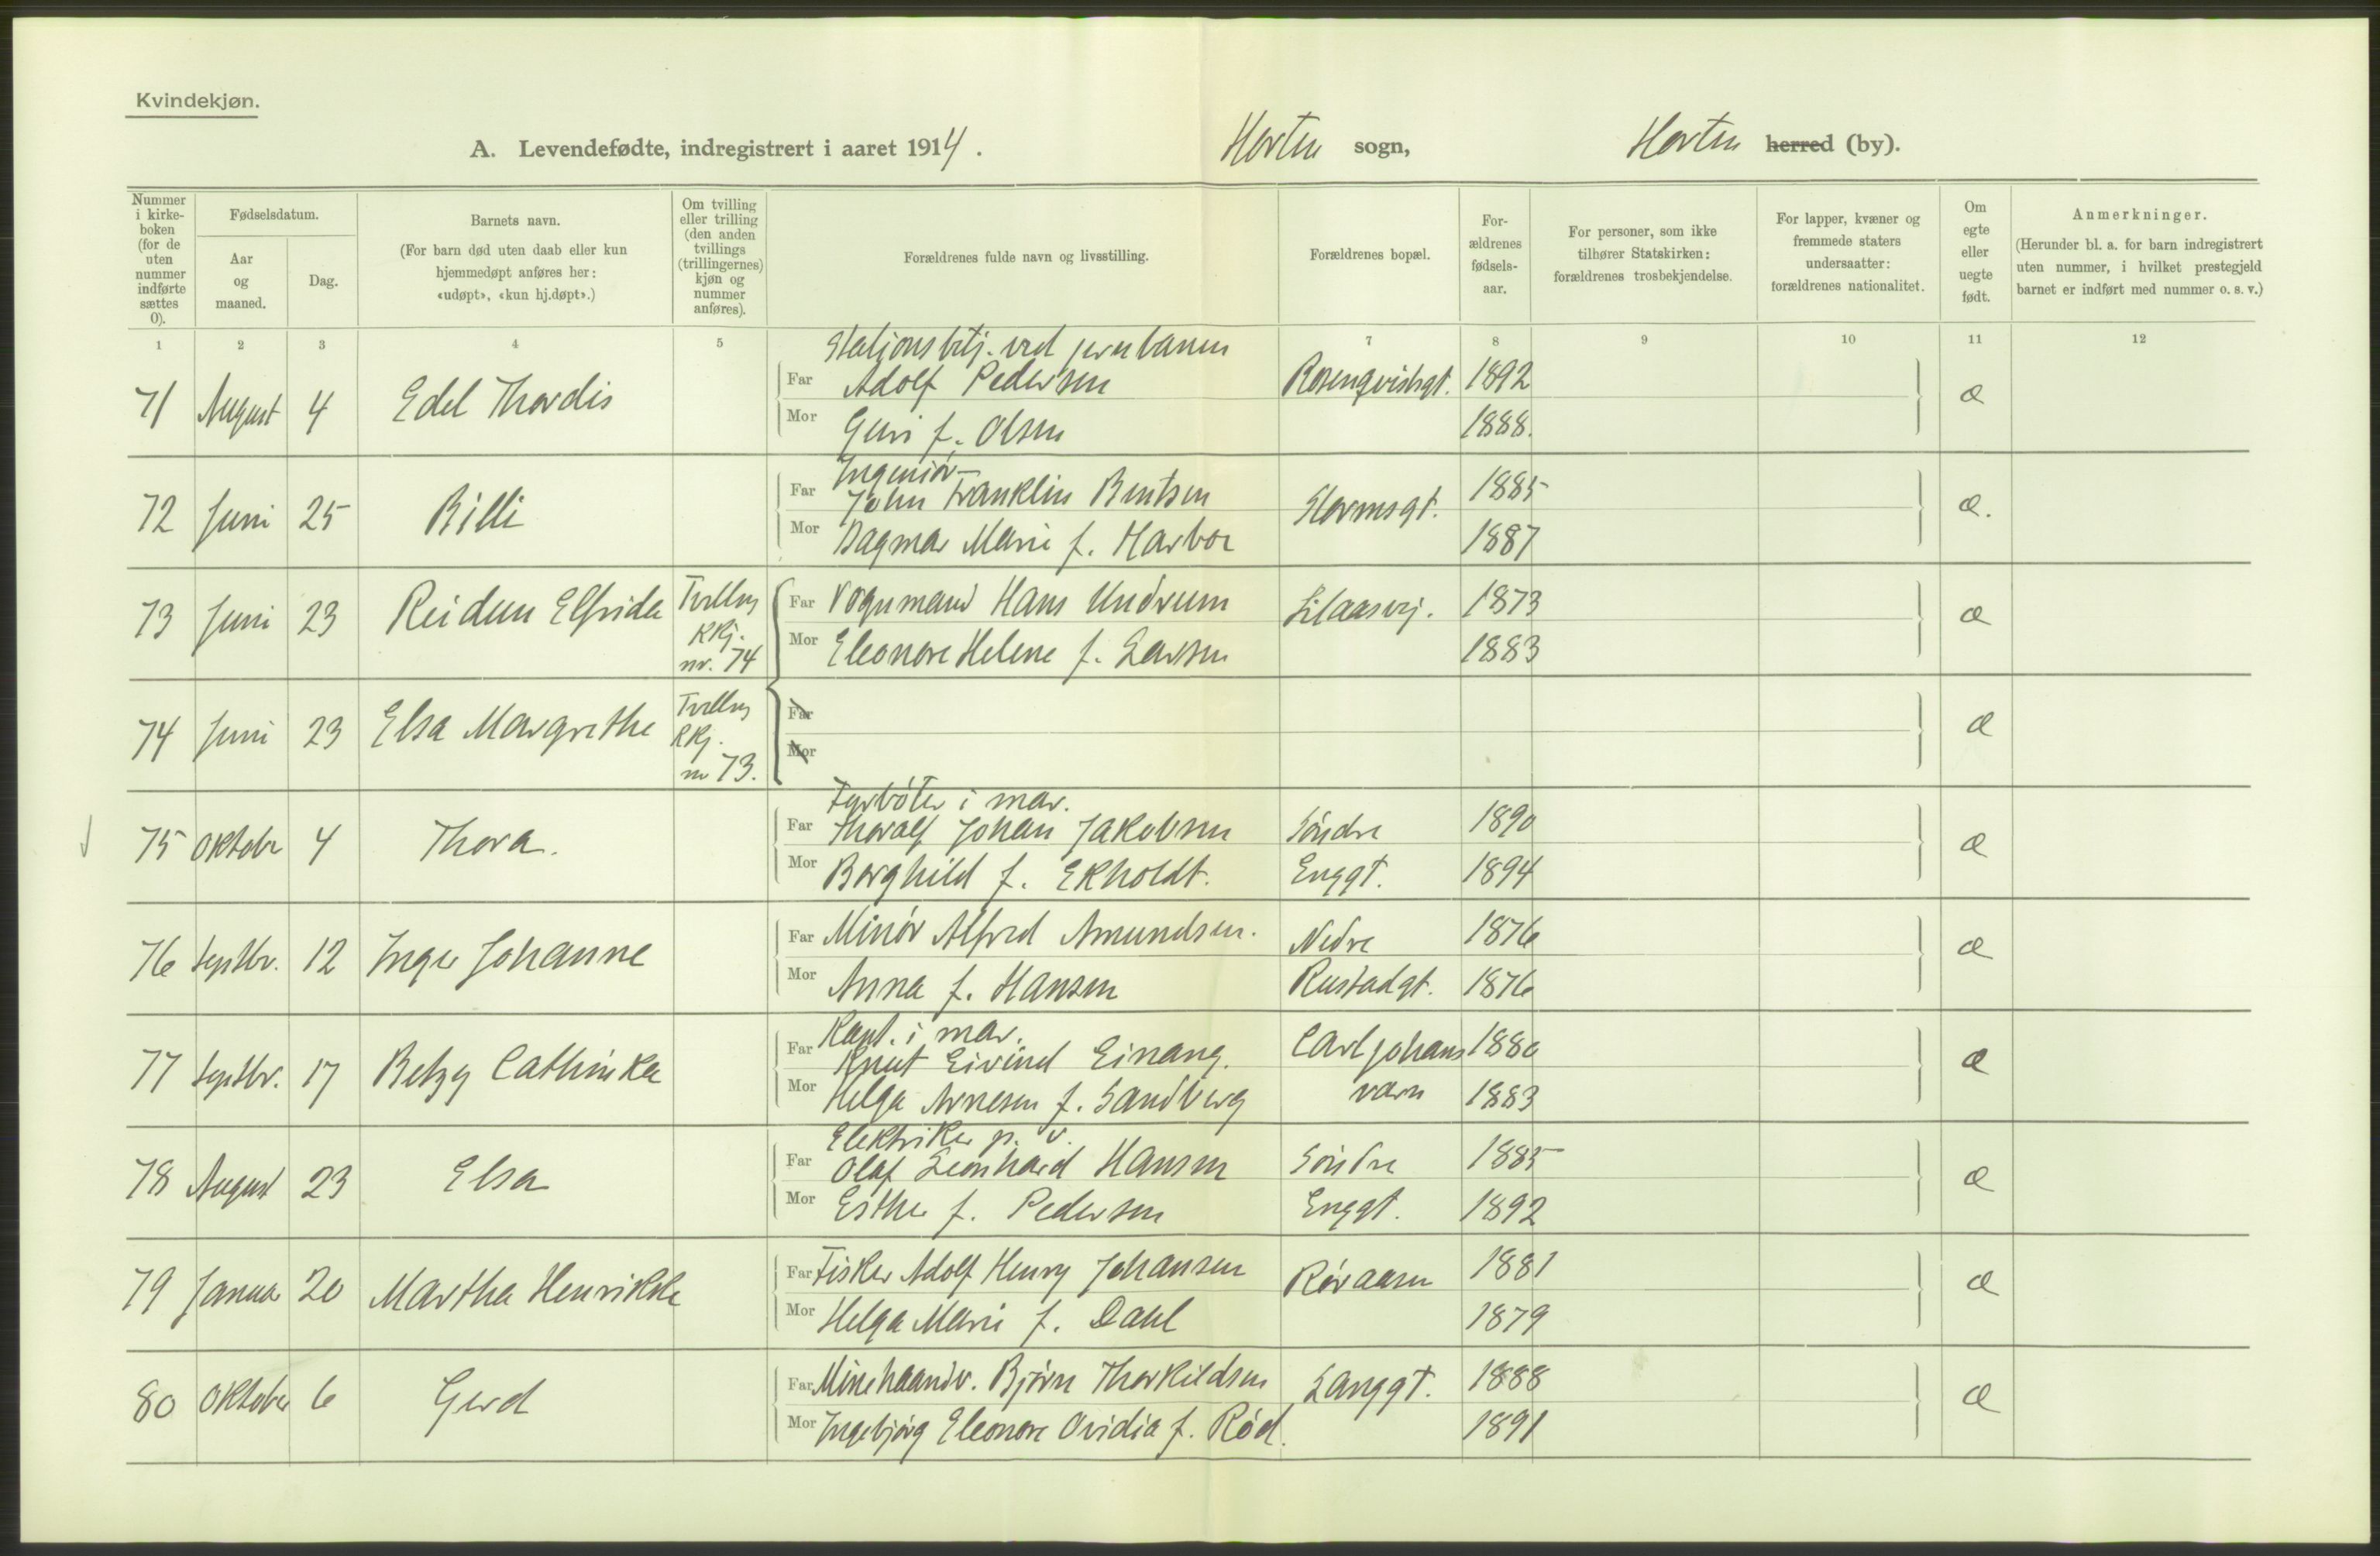 Kvindekjøn.
A. Levendefødte, indregistrert i aaret 1914. Horten sogn, Horten herred (by).
Nummer i kirke-boken (for de uten nummer indførte sættes 0).
Fødselsdatum.
Aar og maaned.
Dag.
Barnets navn.
(For barn død uten daab eller kun hjemmedøpt anføres her: «udøpt», «kun hj.døpt».)
Om tvilling eller trilling (den anden tvillings (trillingernes) kjøn og nummer anføres).
Forældrenes fulde navn og livsstilling.
Forældrenes bopæl.
For-ældrenes fødsels-aar.
For personer, som ikke tilhører Statskirken: forældrenes trosbekjendelse.
For lapper, kvæner og fremmede staters undersaatter: forældrenes nationalitet.
Om egte eller uegte født.
Anmerkninger.
(Herunder bl. a. for barn indregistrert uten nummer, i hvilket prestegjeld barnet er indført med nummer o. s. v.)
1 2 3 4 5 7 8 9 10 11 12
Stationsbtj. ved jernbanen
71 August 4 Edel Thordis Far Adolf Pedersen Rosenqvistsgt. 1892 æ
Mor Guri f. Olsen 1888.
Ingeniør
72 Juni 25 Billi Far John Franklin Bentsen Stormsgt. 1885 æ.
Mor Dagmar Marie f. Harboe 1887
73 Juni 23 Reidun Elfrida Tvilling kkj. nr. 74 Far Vognmand Hans Undrum Lilaasvej. 1873 æ
Mor Eleonore Helene f. Larsen 1883
74 Juni 23 Elsa Margrethe Tvilling kkj. nr 73. Far æ
Mor
Fyrbøter i mar.
75 Oktober 4 Thora. Far Thoralf Johan Jakobsen Søndre 1890 æ
Mor Borghild f. Ekholdt. Enggt. 1894
76 Septbr. 12 Inger Johanne Far Minør Alfred Amundsen. Nedre 1876 æ
Mor Anna f. Hansen Rustadgt. 1876
Kapt. i mar.
77 Septbr. 17 Betzy Cathinka Far Knut Eivind Einang. Carljohans 1880 æ
Mor Helga Arnesen f. Sandberg værn 1883
Elektriker p. v.
78 August 23 Elsa Far Olaf Leonhard Hansen Søndre 1885 æ
Mor Esther f. Pedersen Enggt. 1892
79 Januar 20 Martha Henrikke Far Fisker Adolf Henry Johansen Røraasen 1881 æ
Mor Helga Marie f. Dahl 1879
80 Oktober 6 Gerd Far Minehaandv. Bjørn Thorkildsen Langgt. 1888 æ
Mor Ingebjørg Eleonore Ovidia f. Rød. 1891